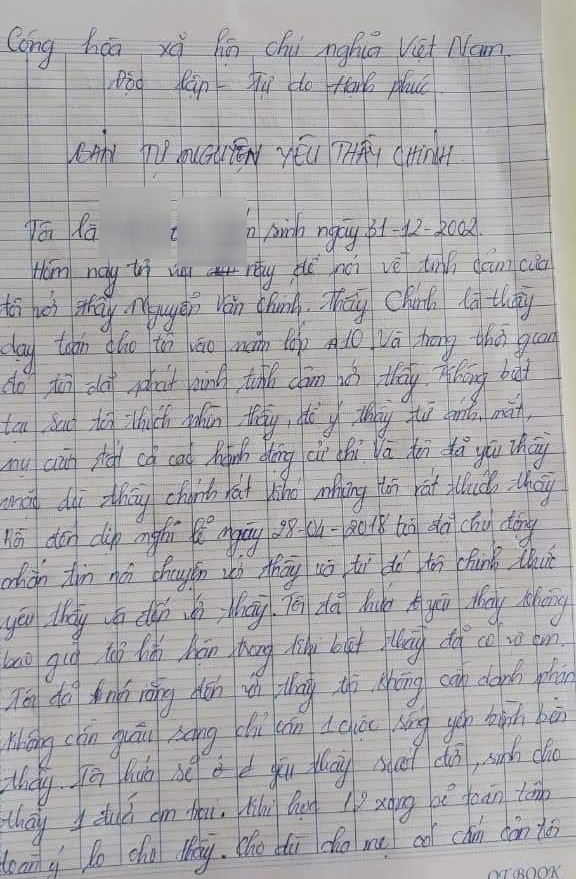 Cộng hòa xã hội chủ nghĩa Việt Nam.
Độc lập - Tự do Hạnh phúc.
BẢN TỰ NGUYỆN YÊU THẦY CHINH.
Tôi là sinh ngày 31-12-2002.
Hôm nay tôi này để nói về tình cảm của
tôi với thầy Nguyễn Văn Chinh. Thầy Chinh là thầy
dạy toán cho tôi vào năm lớp 10. Và trong thời gian
đó tôi đã phát sinh tình cảm với thầy. Không biết
tại sao tôi thích nhìn thầy, để ý thầy từ ánh mắt,
nụ cười tất cả các hành động cử chỉ. Và tôi đã yêu thầy
mặc dù thầy chinh rất khó nhưng tôi rất thích thầy.
đến dịp nghỉ lễ ngày 28-04-2018 tôi đã chủ động
nhắn tin nói chuyện với thầy và từ đó tôi chính thức
yêu thầy và đến với thầy. Tôi đã hứa yêu thầy không
bao giờ tôi hối hận trong khi biết thầy đã có vợ con.
Tôi đã rằng đến với thầy tôi không cần danh phận
không cần giàu sang chỉ cần 1 cuộc sống yên bình bên
thầy. Tôi hứa sẽ ở yêu thầy suốt đời, sinh cho
thầy 1 đứa con trai. Khi học 12 xong sẽ toàn tâm
toàn ý lo cho thầy. Cho dù cha mẹ có cấm cản tôi
OT BOOK